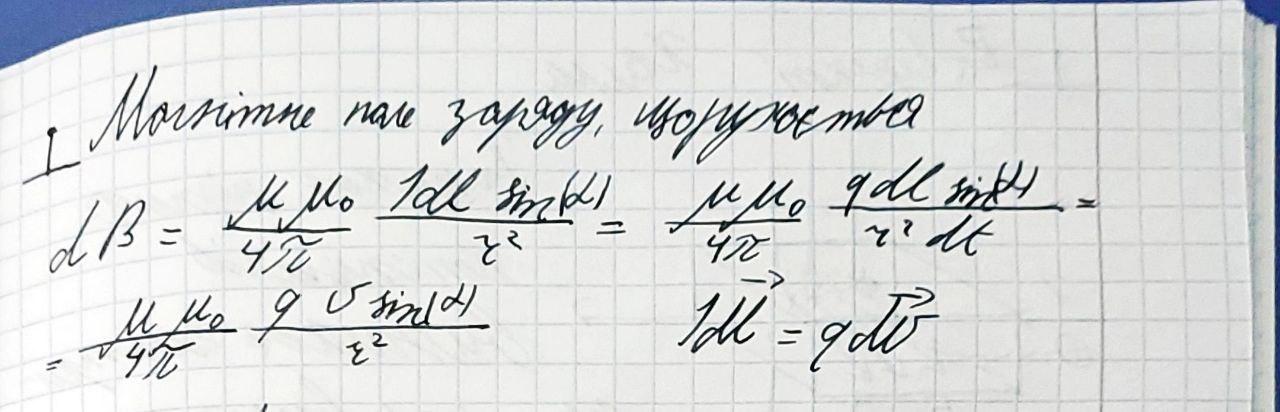 I Магнітне поле заряду, що рухається
dB = μμ₀/4π Idl sin(α)/r² = μμ₀/4π q dl sin(α)/r² dt =
= μμ₀/4π q v sin(α)/r² Idl⃗ = q dv⃗